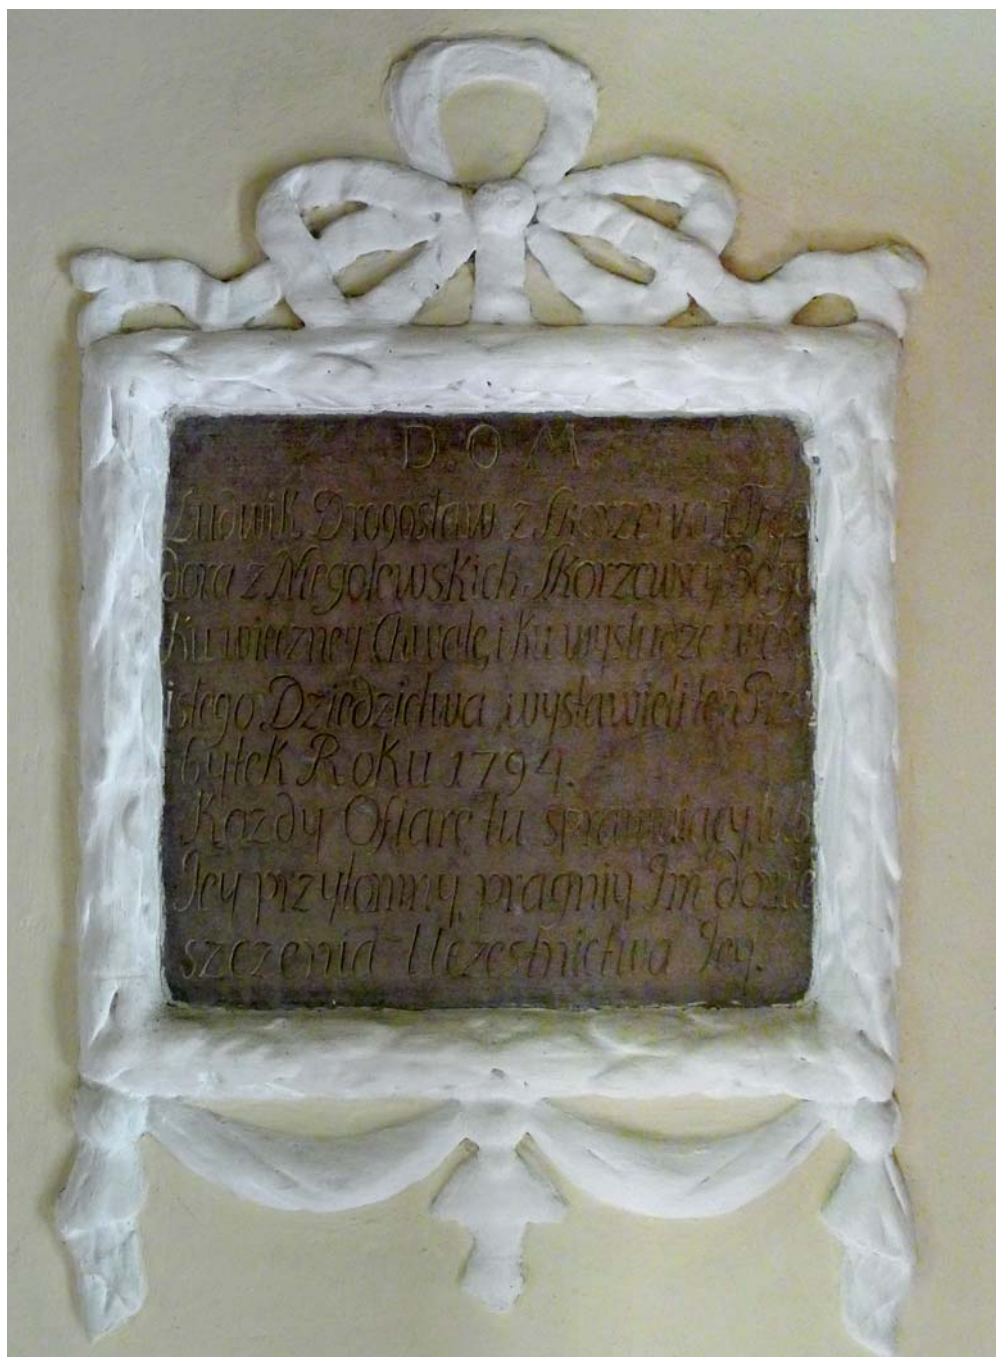 D. O. M.
Ludwik Drogosław z Skorzewa i
dora z Męgolewskich Skorzewscy
Ku wieczney Chwale, i Ku wysłudze
istego Dziedzictwa wysławieli ten
bytek Roku 1794.
Kazdy Ofiarę tu sprawuiący
Jey przytomny, pragniy Im
szczenia Uczestnictwa Jey.